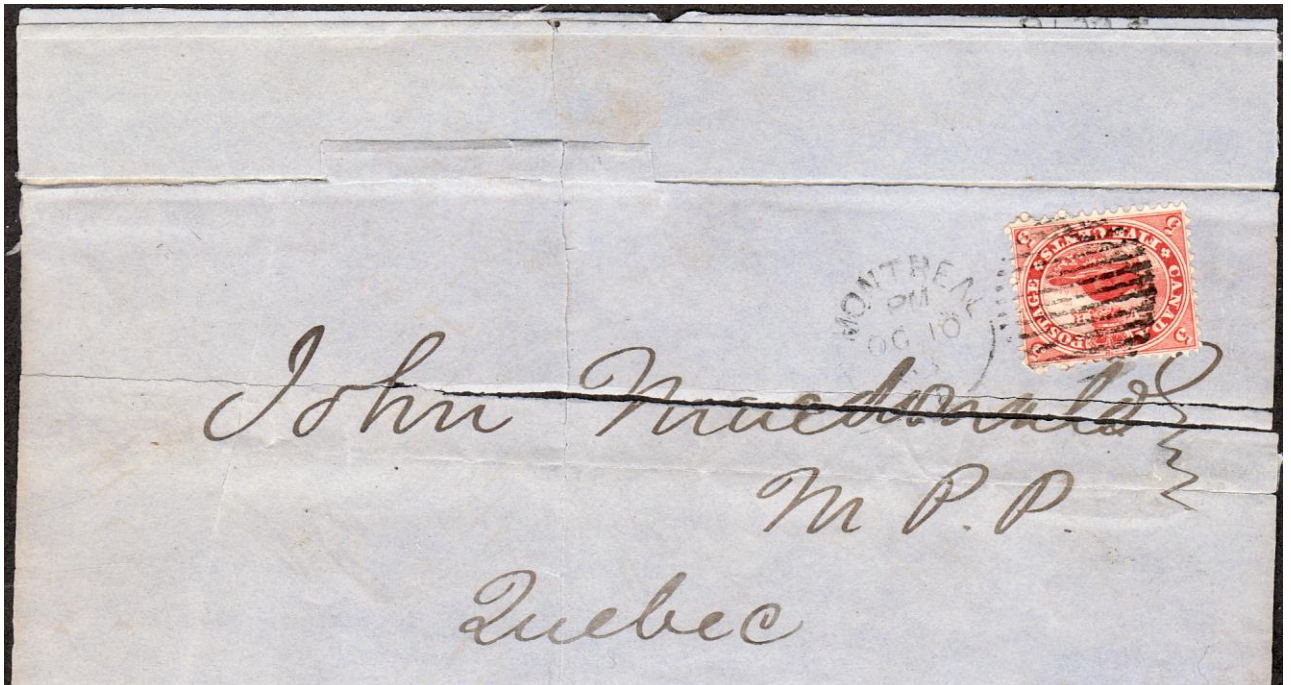 MONTREAL
PM
OC 10
CANADA POSTAGE FIVE CENTS
5 5 5 5
John Macdonald
M P.P.
Quebec